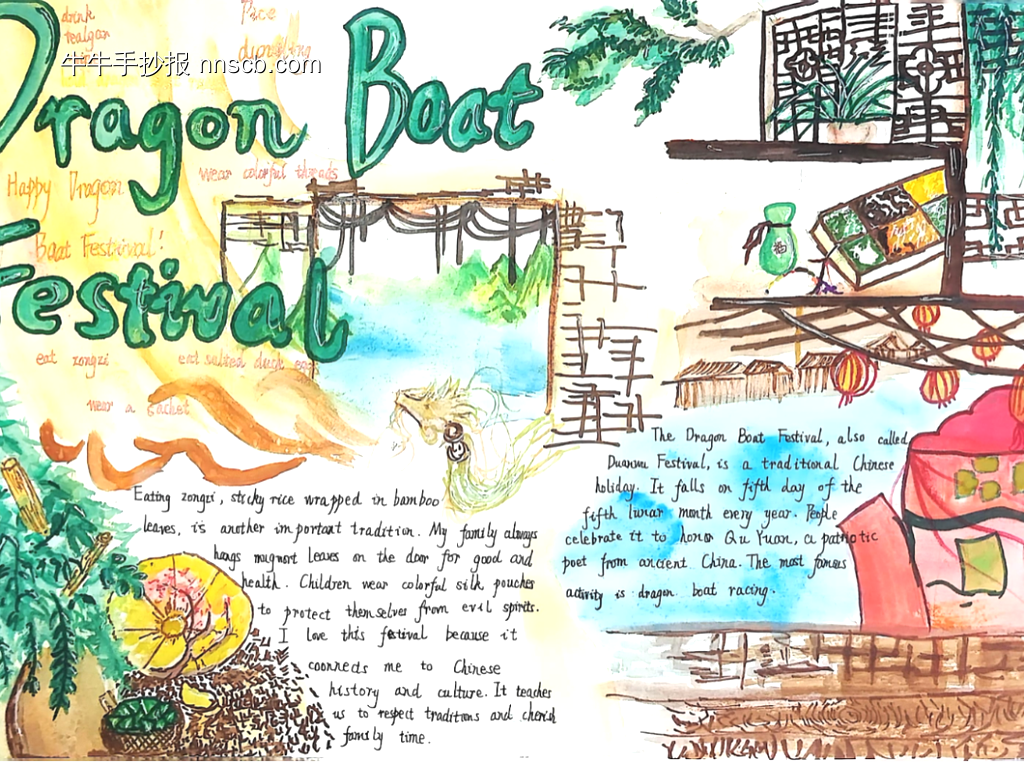 drink
realgar
Rice
dumpling
牛牛手抄报 nnscb.com
Dragon Boat
wear colorful threads
Happy Dragon
Boat Festrival!
Festival
eat zongzi
eat salted duck eggs
wear a sachet
The Dragon Boat Festival, also called
Duanwu Festival, is a traditional Chinese
holiday. It falls on fifth day of the
fifth lunar month every year. People
celebrate it to honor Qu Yuan, a patriotic
poet from ancient China. The most famous
activity is dragon boat racing.
Eating zongzi, sticky rice wrapped in bamboo
leaves, is another important tradition. My family always
hangs mugwort leaves on the door for good and
health. Children wear colorful silk pouches
to protect themselves from evil spirits.
I love this festival because it
connects me to Chinese
history and culture. It teaches
us to respect traditions and cherish
family time.